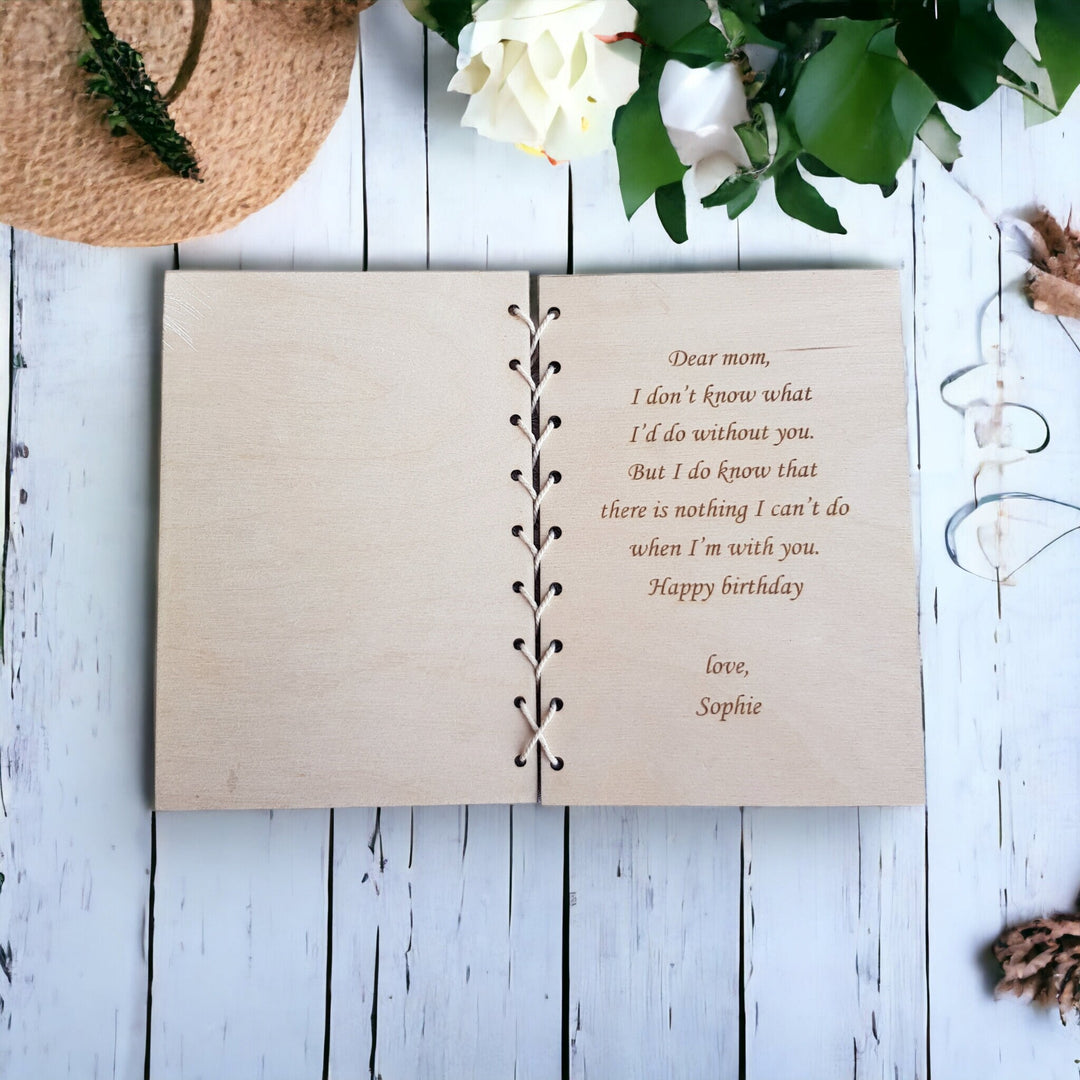 Dear mom,
I don't know what
I'd do without you.
But I do know that
there is nothing I can't do
when I'm with you.
Happy birthday
love,
Sophie